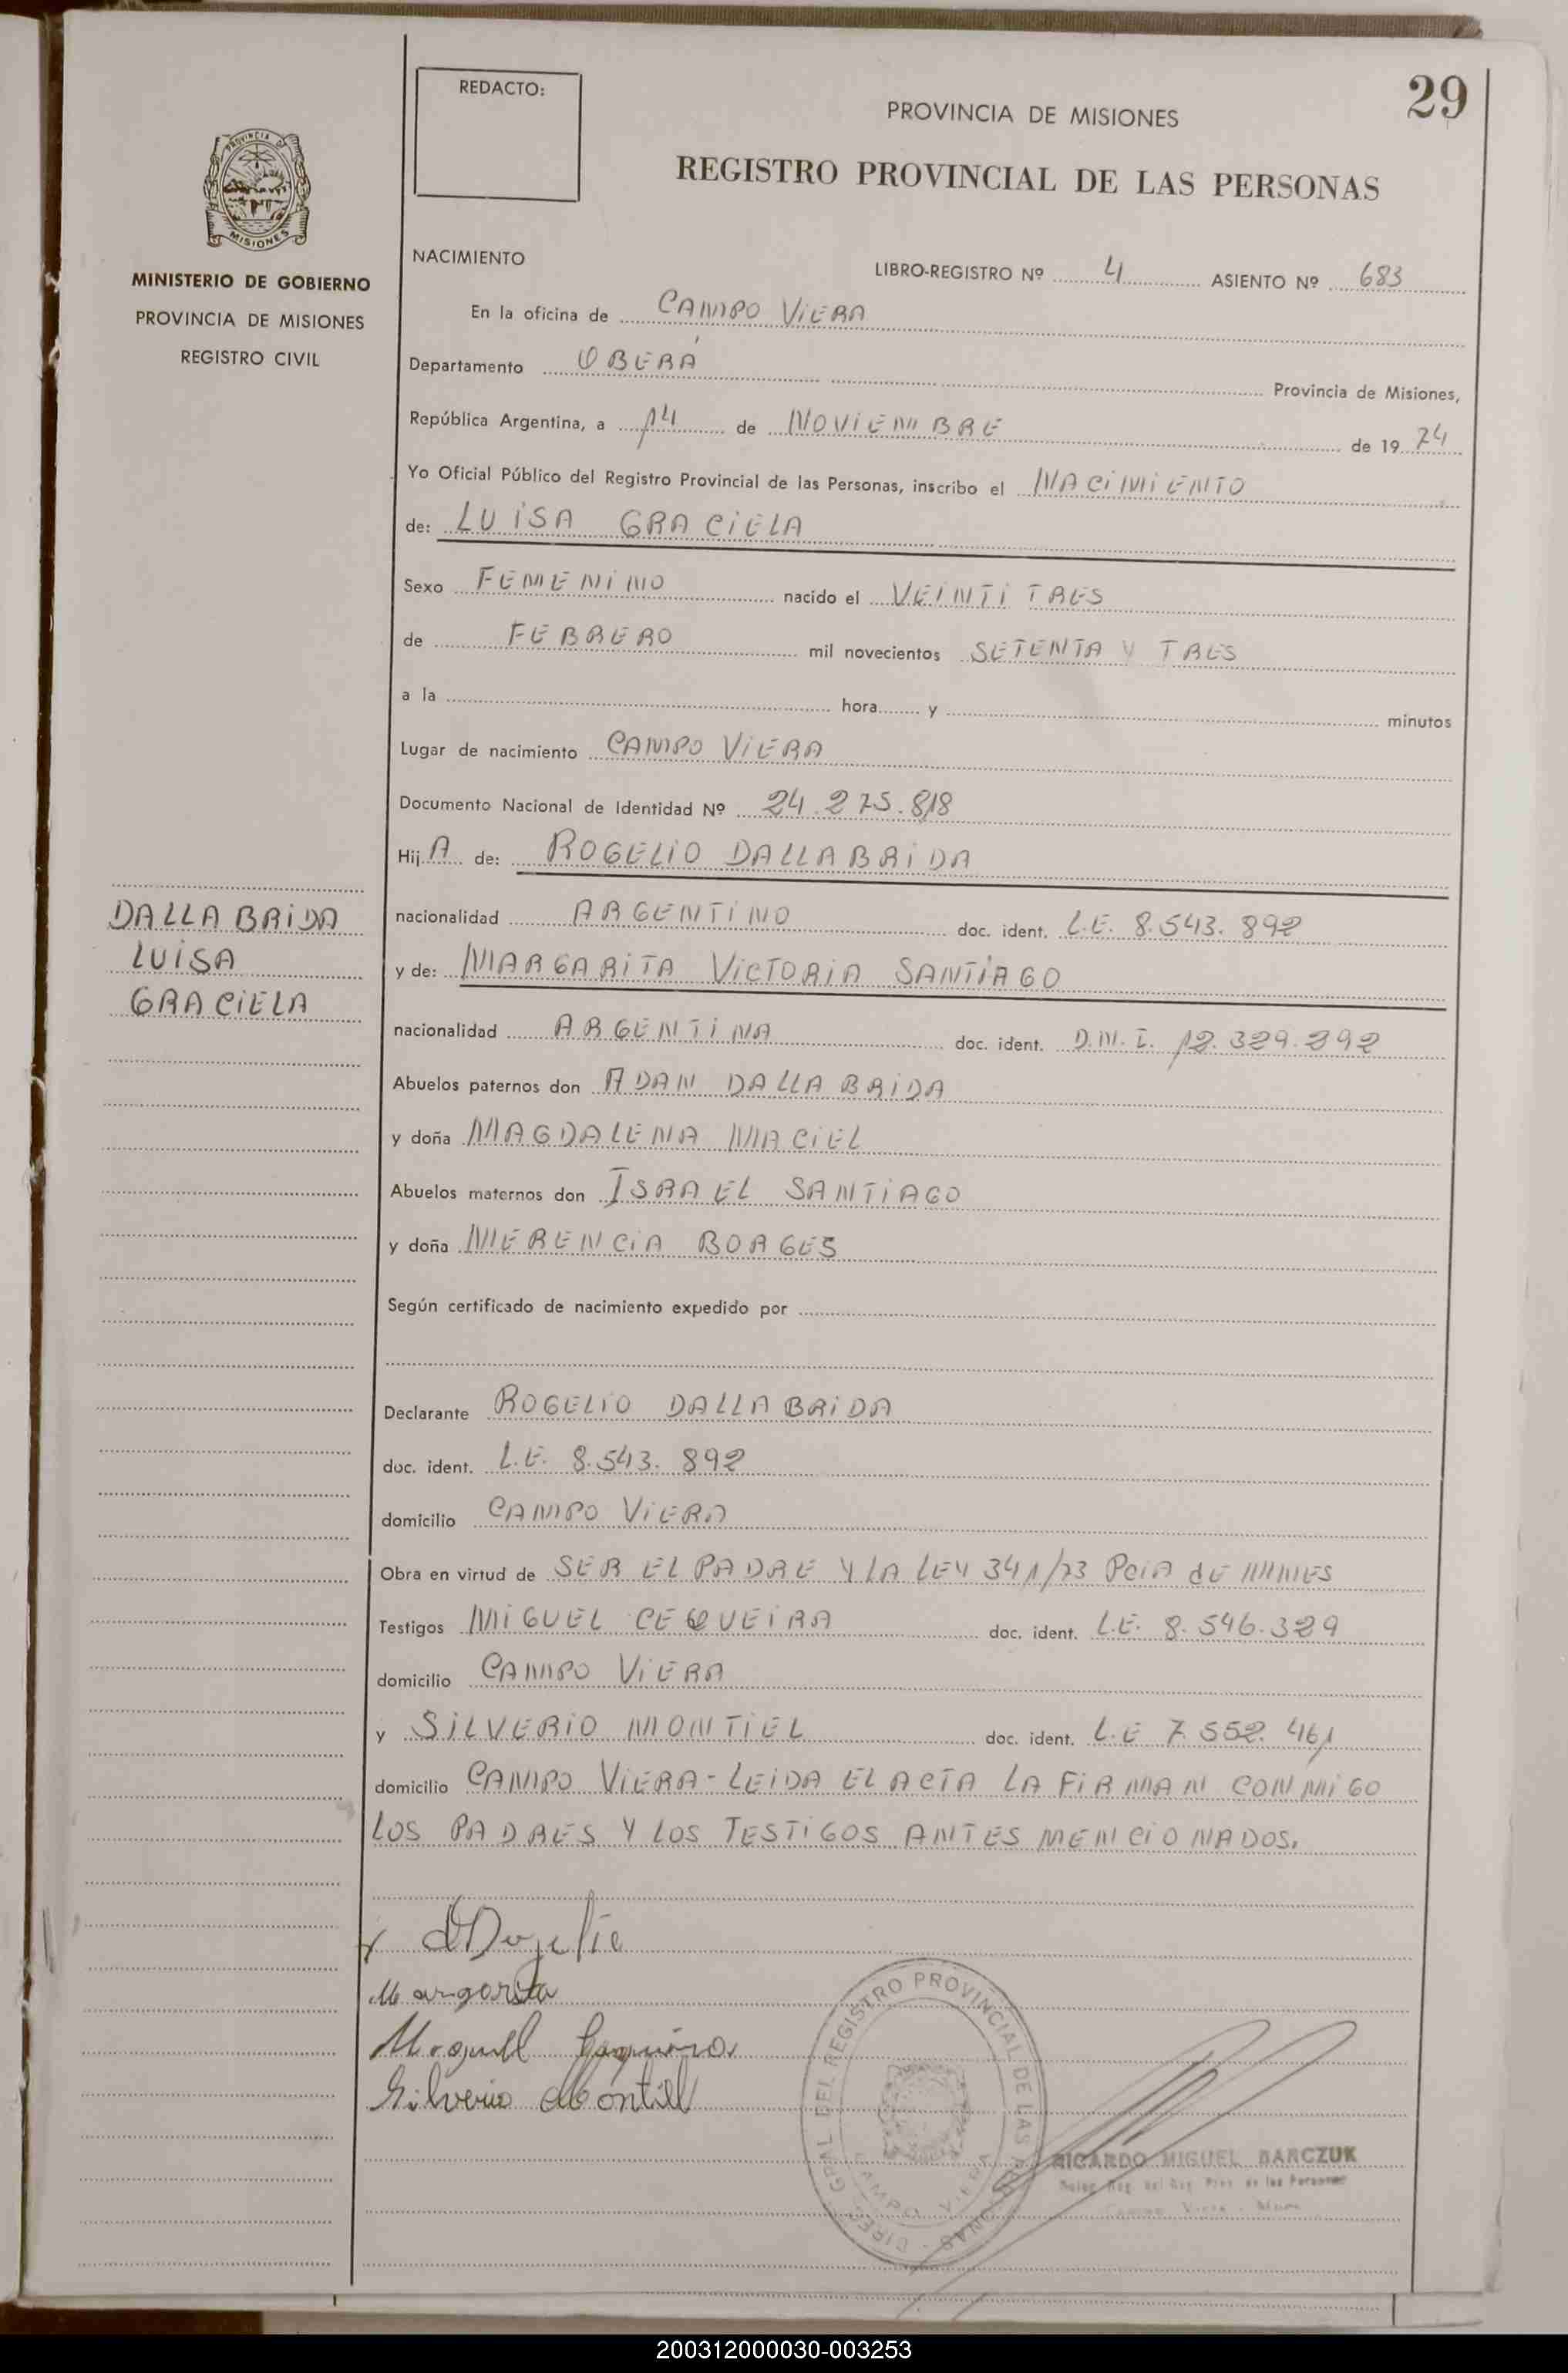 29
REDACTO:
PROVINCIA DE MISIONES
REGISTRO PROVINCIAL DE LAS PERSONAS
PROVINCIA DE
MISIONES
MINISTERIO DE GOBIERNO
PROVINCIA DE MISIONES
REGISTRO CIVIL
NACIMIENTO
LIBRO-REGISTRO Nº 4 ASIENTO Nº 683
En la oficina de CAMPO VIERA
Departamento OBERÁ Provincia de Misiones,
República Argentina, a 14 de NOVIEMBRE de 19 74
Yo Oficial Público del Registro Provincial de las Personas, inscribo el NACIMIENTO
de: LUISA GRACIELA
Sexo FEMENINO nacido el VEINTI TRES
de FEBRERO mil novecientos SETENTA Y TRES
a la hora y minutos
Lugar de nacimiento CAMPO VIERA
Documento Nacional de Identidad Nº 24.275.818
Hij A de: ROGELIO DALLA BRIDA
DALLA BRIDA
LUISA
GRACIELA
nacionalidad ARGENTINO doc. ident. L.E. 8.543.892
y de: MARGARITA VICTORIA SANTIAGO
nacionalidad ARGENTINA doc. ident. D.N.I. 12.329.292
Abuelos paternos don ADAN DALLA BRIDA
y doña MAGDALENA MACIEL
Abuelos maternos don ISRAEL SANTIAGO
y doña MERENCIA BORGES
Según certificado de nacimiento expedido por
Declarante ROGELIO DALLA BRIDA
doc. ident. L.E. 8.543.892
domicilio CAMPO VIERA
Obra en virtud de SER EL PADRE Y LA LEY 341/73 PCIA dE MNES
Testigos MIGUEL CEQUEIRA doc. ident. L.E. 8.546.329
domicilio CAMPO VIERA
y SILVERIO MONTIEL doc. ident. L.E 7.552.461
domicilio CAMPO VIERA - LEIDA EL ACTA LA FIRMAN CONMIGO
LOS PADRES Y LOS TESTIGOS ANTES MENCIONADOS.
Margarita
Silverio Montiel
DIREC. GRAL. DEL REGISTRO PROVINCIAL DE LAS PERSONAS
CAMPO VIERA
RICARDO MIGUEL BARCZUK
200312000030-003253